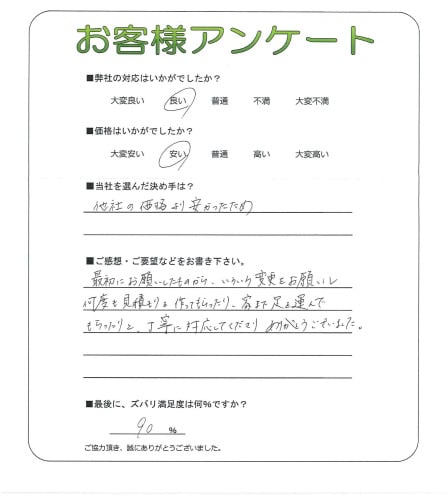 お客様アンケート
■弊社の対応はいかがでしたか?
大変良い 良い 普通 不満 大変不満
■価格はいかがでしたか?
大変安い 安い 普通 高い 大変高い
■当社を選んだ決め手は?
他社の価格より安かったため
■ご感想・ご要望などをお書き下さい。
最初にお願いしたものから、いろいろ変更をお願いし
何度も見積もりを作ってもらったり、家まで足を運んで
もらったりと、丁寧に対応してくださりありがとうございました。
■最後に、ズバリ満足度は何%ですか?
90 %
ご協力頂き、誠にありがとうございました。